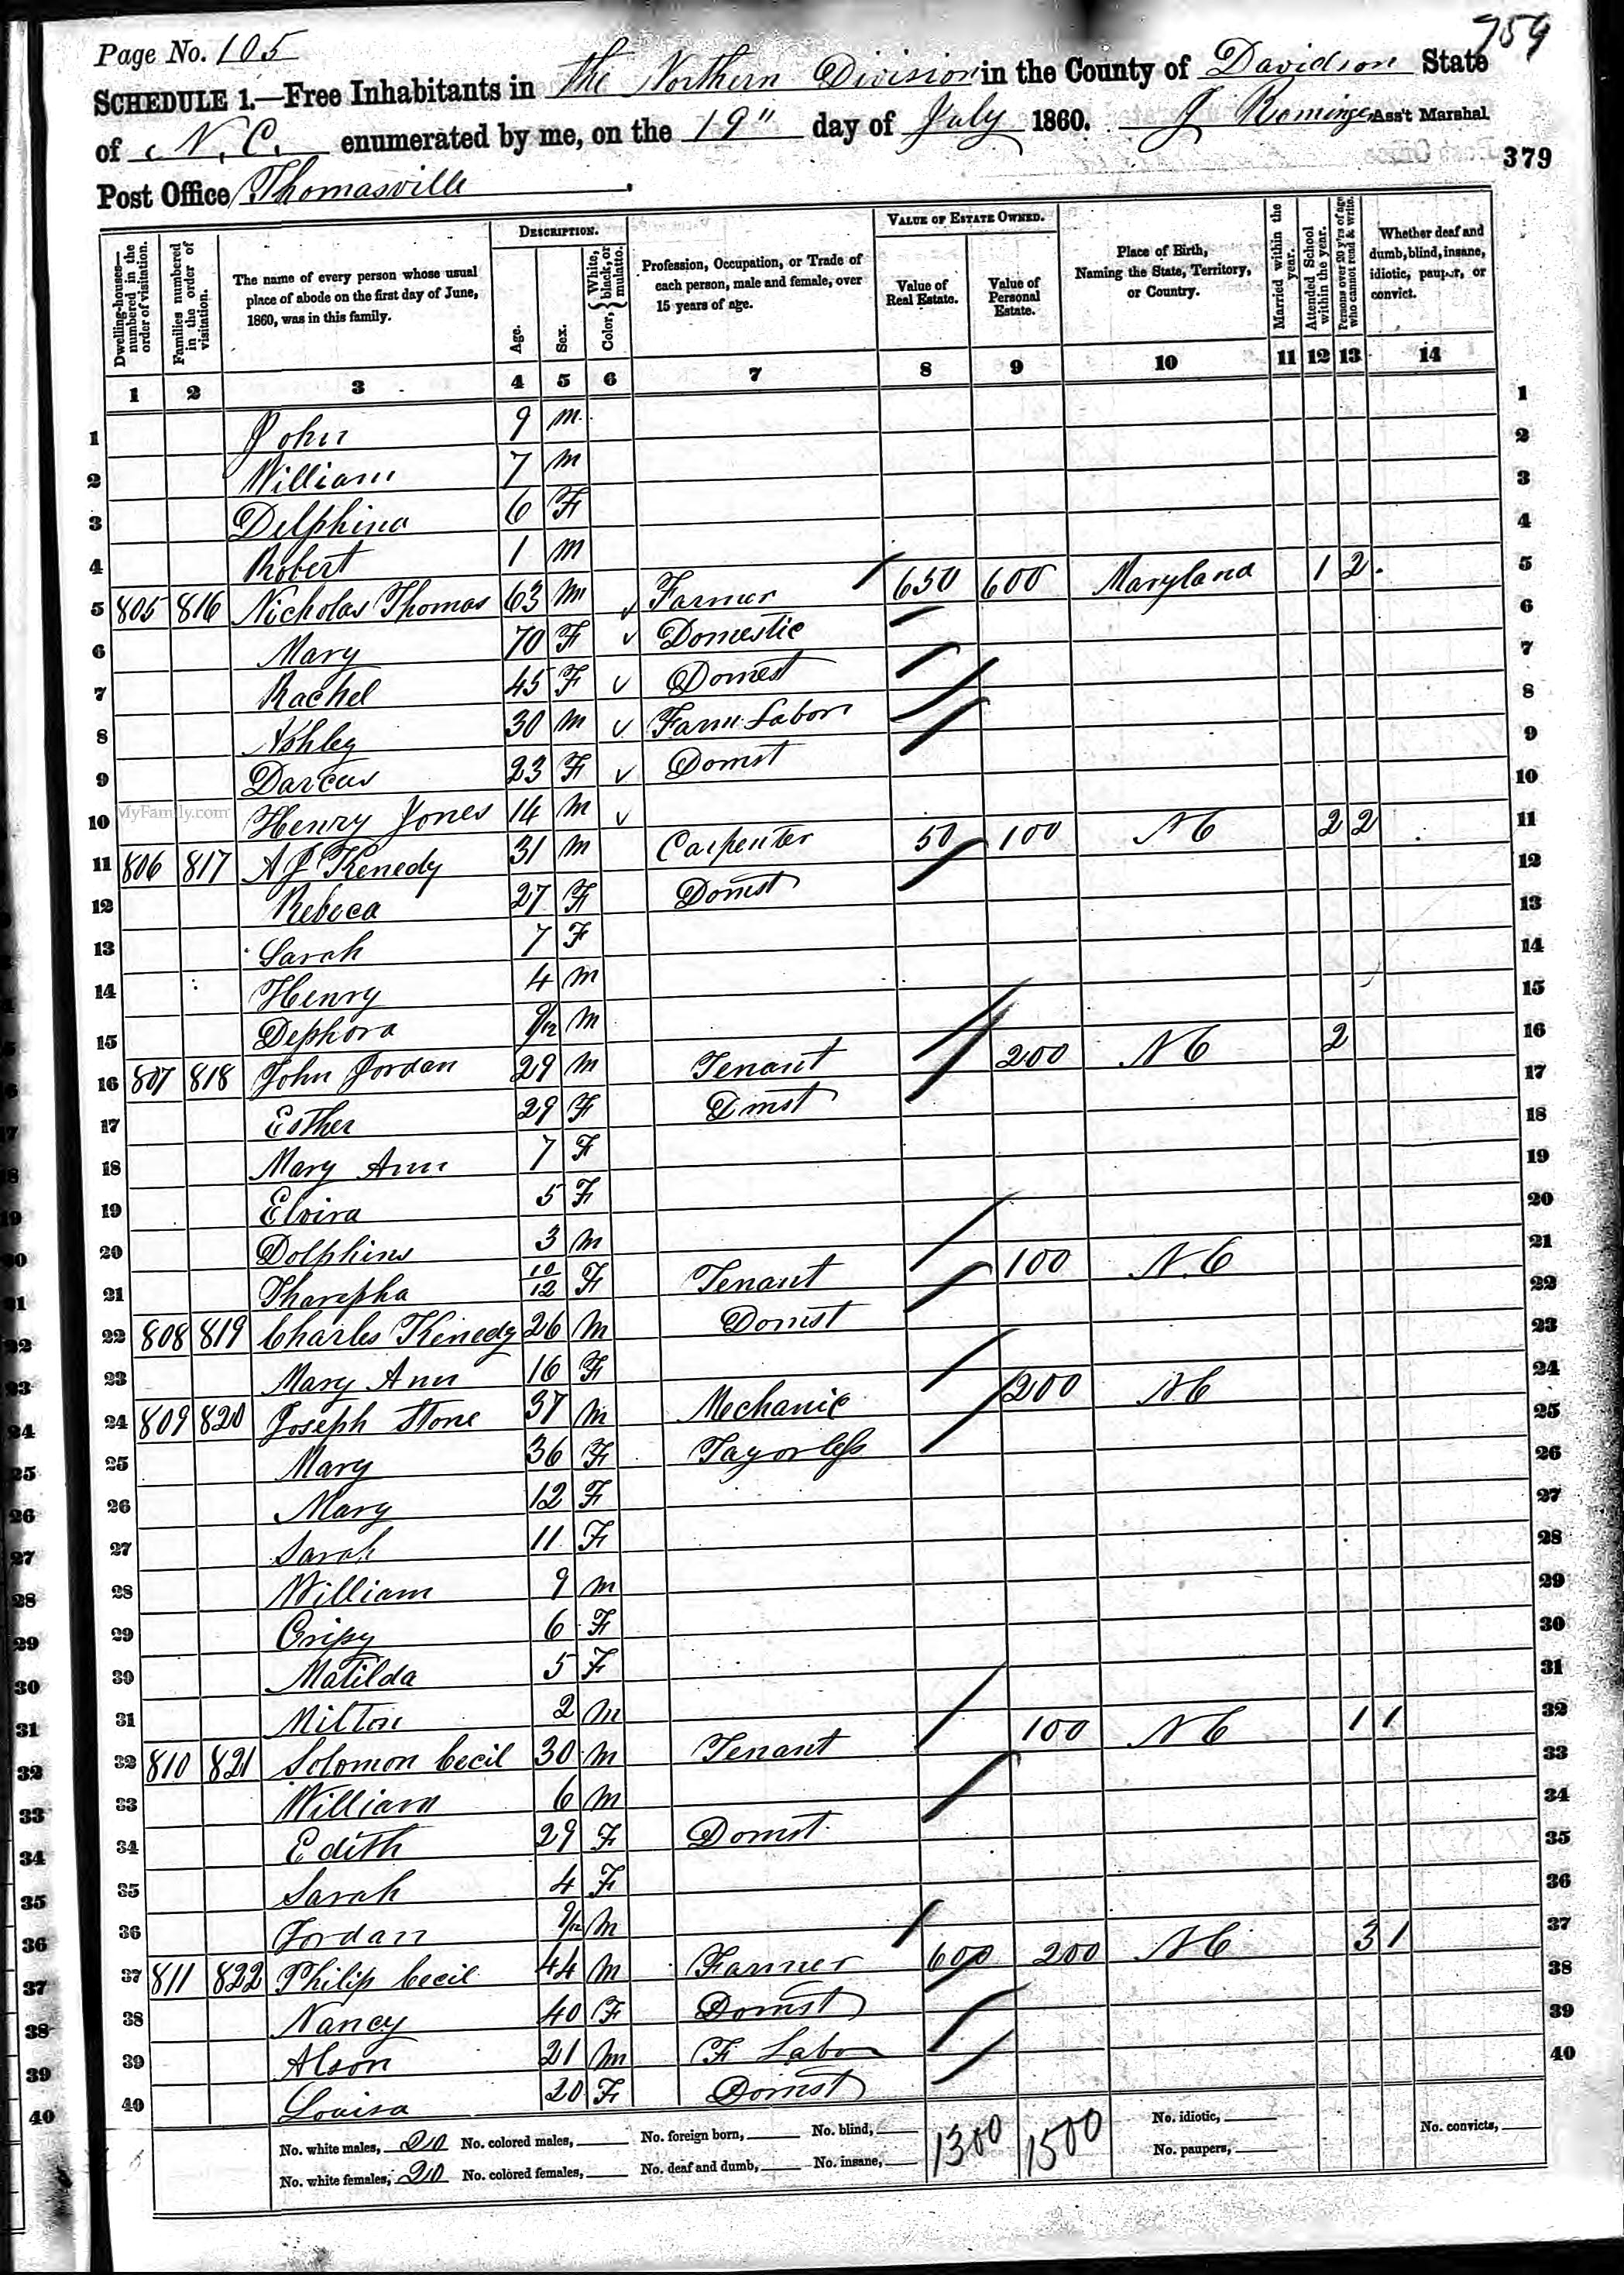 759
Page No. 105
SCHEDULE 1.—Free Inhabitants in the Northern Division in the County of Davidson State
of N. C. enumerated by me, on the 19" day of July 1860. J Rominger Ass't Marshal
379
Post Office Thomasville
Dwelling-houses—numbered in the order of visitation.
Families numbered in the order of visitation.
The name of every person whose usual place of abode on the first day of June, 1860, was in this family.
DESCRIPTION.
Age.
Sex.
Color, {White, black, or mulatto.
Profession, Occupation, or Trade of each person, male and female, over 15 years of age.
VALUE OF ESTATE OWNED.
Value of Real Estate.
Value of Personal Estate.
Place of Birth, Naming the State, Territory, or Country.
Married within the year.
Attended School within the year.
Persons over 20 y'rs of age who cannot read & write.
Whether deaf and dumb, blind, insane, idiotic, pauper, or convict.
1 2 3 4 5 6 7 8 9 10 11 12 13 14
1 John 9 m 1
2 William 7 m 2
3 Delphina 6 F 3
4 Robert 1 m 4
5 805 816 Nicholas Thomas 63 m Farmer 650 600 Maryland 1 2 5
6 Mary 70 F Domestic 6
7 Rachel 45 F Domest 7
8 Ashley 30 m Farm Labor 8
9 Darcus 23 F Domst 9
MyFamily.com
10 Henry Jones 14 m 10
11 806 817 A J Kenedy 31 m Carpenter 50 100 N C 2 2 11
12 Rebeca 27 F Domst 12
13 Sarah 7 F 13
14 Henry 4 m 14
15 Dephora 9/12 m 15
16 807 818 John Jordan 29 m Tenant 200 N C 2 16
17 Esther 29 F Dmst 17
18 Mary Ann 7 F 18
19 Elvira 5 F 19
20 Dolphins 3 m 20
21 Tharepha 10/12 F 21
22 808 819 Charles Kenedy 26 m Tenant 100 N. C 22
23 Mary Ann 16 F Domst 23
24 809 820 Joseph Stone 37 m Mechanic 200 N C 24
25 Mary 36 F Tayorless 25
26 Mary 12 F 26
27 Sarah 11 F 27
28 William 9 m 28
29 Crisy 6 F 29
30 Matilda 5 F 30
31 Milton 2 m 31
32 810 821 Solomon Cecil 30 m Tenant 100 N C 1 1 32
33 William 6 m 33
34 Edith 29 F Domst 34
35 Sarah 4 F 35
36 Jordan 9/12 m 36
37 811 822 Philip Cecil 44 m Farmer 600 200 N C 3 1 37
38 Nancy 40 F Domst 38
39 Alson 21 m F Labor 39
40 Louisa 20 F Domst 40
No. white males, 20 No. colored males, No. foreign born, No. blind, 1300 1500 No. idiotic, No. convicts,
No. white females, 20 No. colored females, No. deaf and dumb, No. insane, No. paupers,